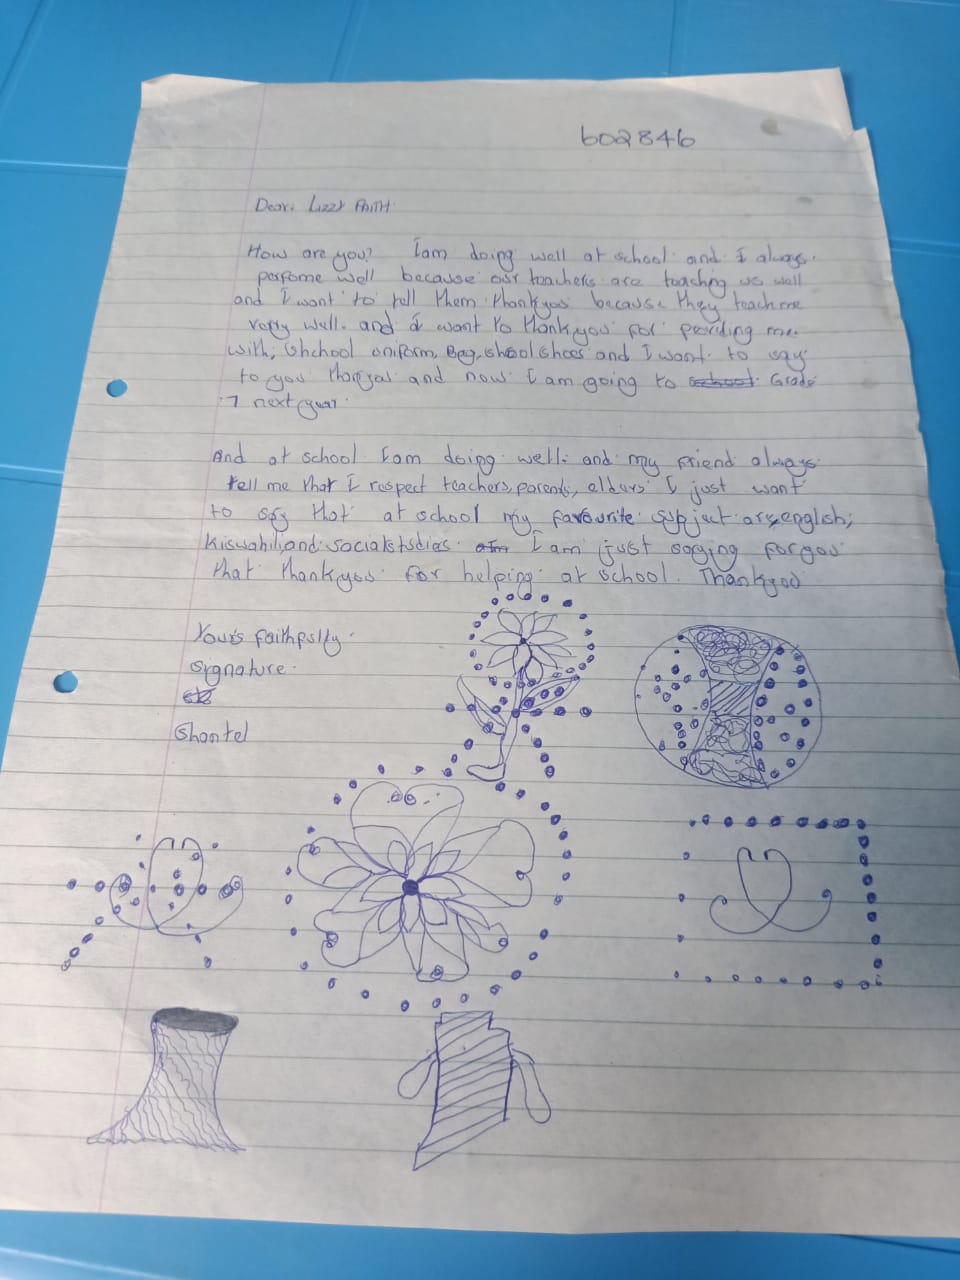 602846
Dear. Lizzy FAITH.
How are you? I am doing well at school and I always.
perfome well because our teachers are teaching us well
and I want to tell them thankyou because they teach me
very well. and I want to thank you for providing me
with; Shchool uniform, Bag, shool shoes and I want to say
to you thankyou and now I am going to school Grade
7 next year.
And at school I am doing well. and my friend always
tell me that I respect teachers, parents, elders I just want
to say that at school my favourite subject are, english;
Kiswahili, and socialstudies. I am just saying for you
that thankyou for helping at school. Thankyou
Yours faithfully.
signature.
Shantel